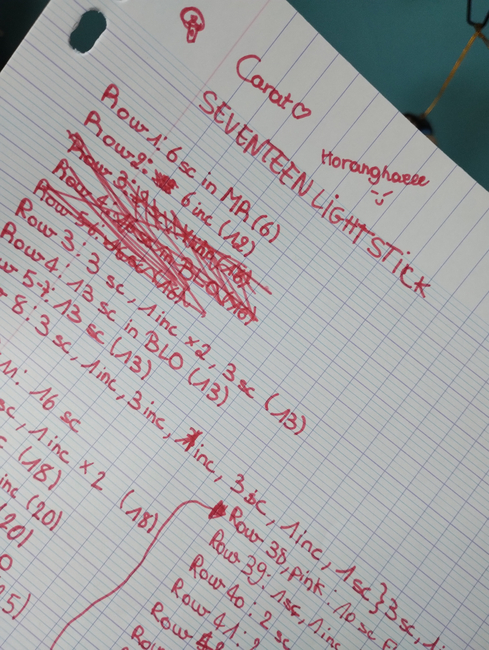 Carat♡
SEVENTEEN LIGHTSTICK
Horanghaeee
Row 1: 6 sc in MR (6)
Row 2: 6 inc (12)
Row 3: 3 sc, 1 inc x2, 3 sc (13)
Row 4: 13 sc in BLO (13)
5-7: 13 sc (13)
8: 3 sc, 1 inc, 3 inc, 1 inc, 3 sc, 1 inc, 1 sc} 3 sc, 1
16 sc
sc, 1 inc x 2 (18)
(18)
inc (20)
(20)
Row 38, pink: 10 sc
Row 39: 1 sc, 1 inc
Row 40: 2 sc
Row 41: 2
Row